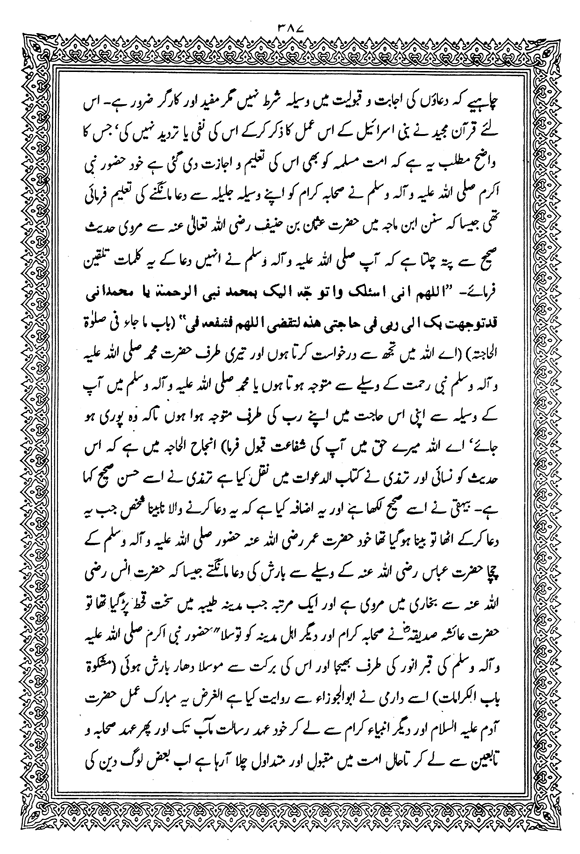 ۳۸۷
چاہیے کہ دعاؤں کی اجابت و قبولیت میں وسیلہ شرط نہیں مگر مفید اور کارگر ضرور ہے۔ اس
لئے قرآن مجید نے بنی اسرائیل کے اس عمل کا ذکر کرکے اس کی نفی یا تردید نہیں کی، جس کا
واضح مطلب یہ ہے کہ امت مسلمہ کو بھی اس کی تعلیم و اجازت دی گئی ہے خود حضور نبی
اکرم صلی اللہ علیہ و آلہ وسلم نے صحابہ کرام کو اپنے وسیلہ جلیلہ سے دعا مانگنے کی تعلیم فرمائی
تھی جیسا کہ سنن ابن ماجہ میں حضرت عثمان بن حنیف رضی اللہ تعالیٰ عنہ سے مروی حدیث
صحیح سے پتہ چلتا ہے کہ آپ صلی اللہ علیہ و آلہ وسلم نے انہیں دعا کے یہ کلمات تلقین
فرمائے۔ "اللھم انی اسئلک واتوجّہ الیک بمحمد نبی الرحمتہ یا محمدانی
قدتوجھت بک الی ربی فی حاجتی ھذہ لتقضی اللھم فشفعہ فی" (باب ماجاء فی صلوٰۃ
الحاجتہ) (اے اللہ میں تجھ سے درخواست کرتا ہوں اور تیری طرف حضرت محمد صلی اللہ علیہ
و آلہ وسلم نبی رحمت کے وسیلے سے متوجہ ہوتا ہوں یا محمد صلی اللہ علیہ و آلہ وسلم میں آپ
کے وسیلہ سے اپنی اس حاجت میں اپنے رب کی طرف متوجہ ہوا ہوں تاکہ وہ پوری ہو
جائے، اے اللہ میرے حق میں آپ کی شفاعت قبول فرما) انجاح الحاجہ میں ہے کہ اس
حدیث کو نسائی اور ترمذی نے کتاب الدعوات میں نقل کیا ہے ترمذی نے اسے حسن صحیح کہا
ہے۔ بیہقی نے اسے صحیح لکھا ہے اور یہ اضافہ کیا ہے کہ یہ دعا کرنے والا نابینا شخص جب یہ
دعا کرکے اٹھا تو بینا ہوگیا تھا خود حضرت عمر رضی اللہ عنہ حضور صلی اللہ علیہ و آلہ وسلم کے
چچا حضرت عباس رضی اللہ عنہ کے وسیلے سے بارش کی دعا مانگتے جیسا کہ حضرت انس رضی
اللہ عنہ سے بخاری میں مروی ہے اور ایک مرتبہ جب مدینہ طیبہ میں سخت قحط پڑ گیا تھا تو
حضرت عائشہ صدیقہؓ نے صحابہ کرام اور دیگر اہل مدینہ کو توسلا" حضور نبی اکرم صلی اللہ علیہ
و آلہ وسلم کی قبر انور کی طرف بھیجا اور اس کی برکت سے موسلا دھار بارش ہوئی (مشکوٰۃ
باب الکرامات) اسے دارمی نے ابوالجوزاء سے روایت کیا ہے الغرض یہ مبارک عمل حضرت
آدم علیہ السلام اور دیگر انبیاء کرام سے لے کر خود عہد رسالت مآب تک اور پھر عہد صحابہ و
تابعین سے لے کر تاحال امت میں مقبول اور متداول چلا آرہا ہے اب بعض لوگ دین کی